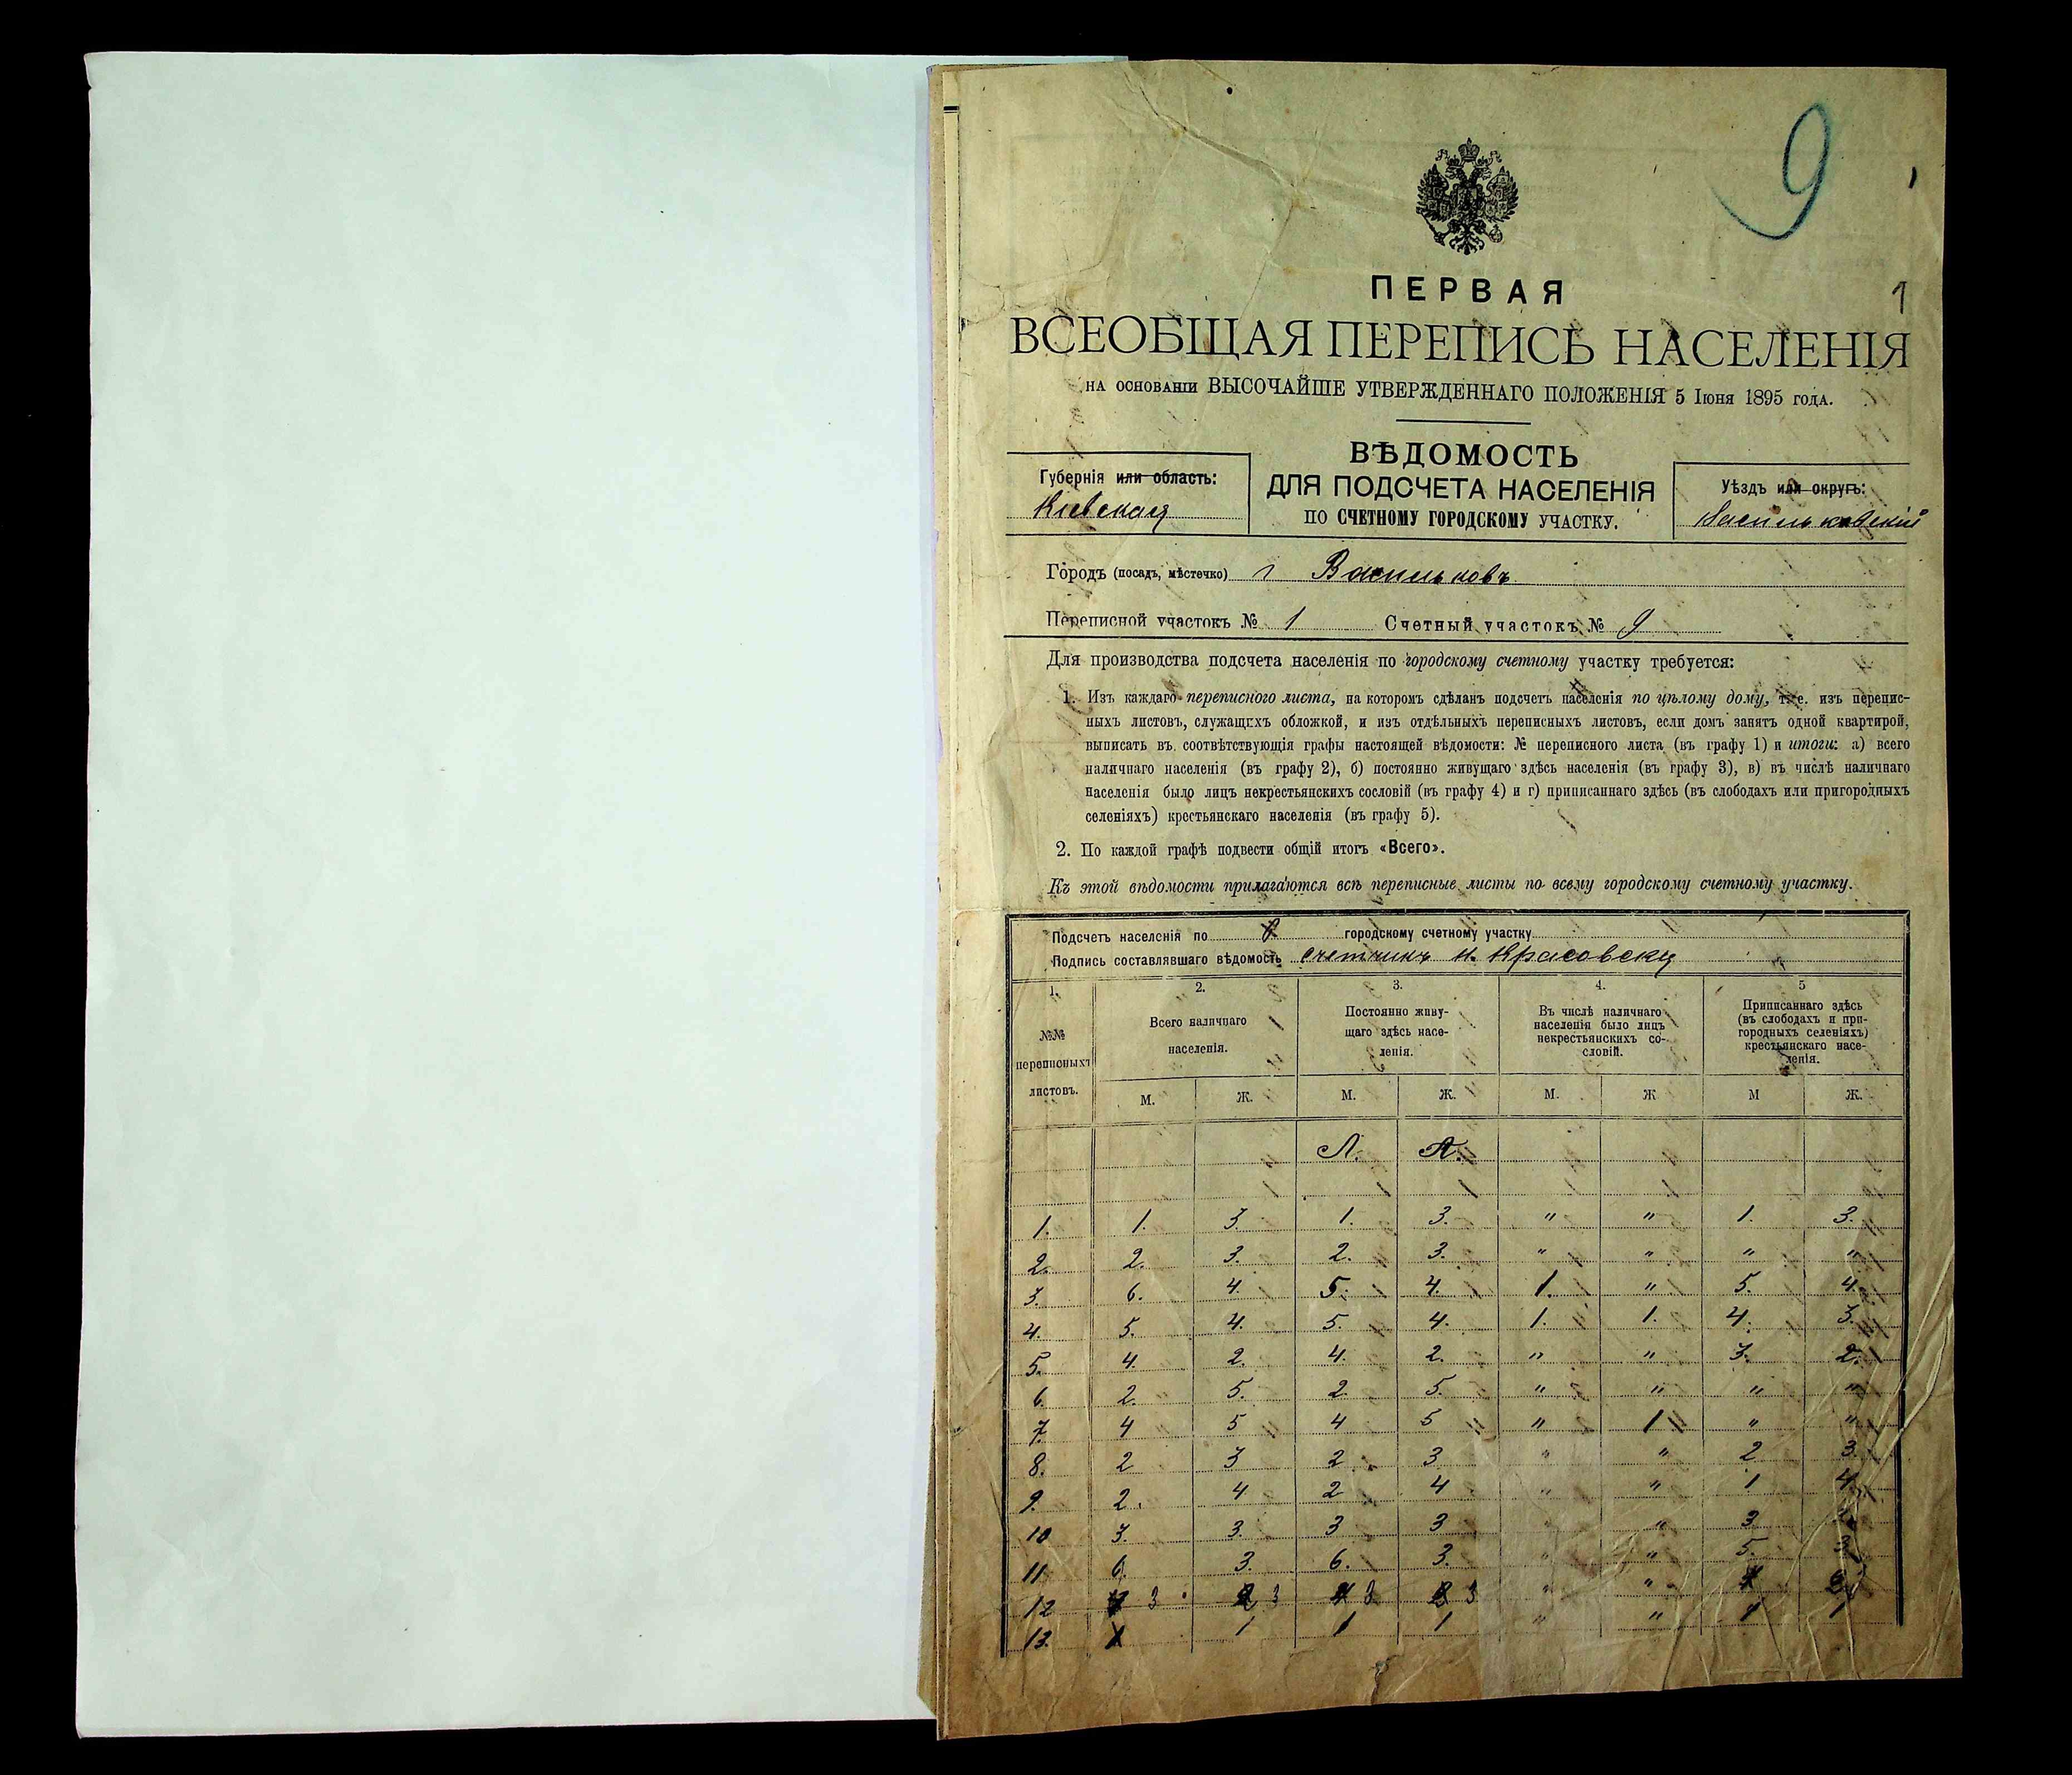 9
1
ПЕРВАЯ
ВСЕОБЩАЯ ПЕРЕПИСЬ НАСЕЛЕНІЯ
НА ОСНОВАНІИ ВЫСОЧАЙШЕ УТВЕРЖДЕННАГО ПОЛОЖЕНІЯ 5 Іюня 1895 ГОДА.
ВѢДОМОСТЬ
ДЛЯ ПОДСЧЕТА НАСЕЛЕНІЯ
ПО СЧЕТНОМУ ГОРОДСКОМУ УЧАСТКУ.
Губернія или область:
Кіевская
Уѣздъ или округъ:
Васильковскій
Городъ (посадъ, мѣстечко) г Васильковъ
Переписной участокъ № 1 Счетный участокъ № 9
Для производства подсчета населенія по городскому счетному участку требуется:
1. Изъ каждаго переписного листа, на которомъ сдѣланъ подсчетъ населенія по цѣлому дому, т. е. изъ перепис-
ныхъ листовъ, служащихъ обложкой, и изъ отдѣльныхъ переписныхъ листовъ, если домъ занятъ одной квартирой,
выписать въ соотвѣтствующія графы настоящей вѣдомости: № переписного листа (въ графу 1) и итоги: а) всего
наличнаго населенія (въ графу 2), б) постоянно живущаго здѣсь населенія (въ графу 3), в) въ числѣ наличнаго
населенія было лицъ некрестьянскихъ сословій (въ графу 4) и г) приписаннаго здѣсь (въ слободахъ или пригородныхъ
селеніяхъ) крестьянскаго населенія (въ графу 5).
2. По каждой графѣ подвести общій итогъ «Всего».
Къ этой вѣдомости прилагаются всѣ переписные листы по всему городскому счетному участку.
Подсчетъ населенія по городскому счетному участку
Подпись составлявшаго вѣдомость счетчикъ Н. Красовску
1. 2. 3. 4. 5
№№
переписныхъ
листовъ.
Всего наличнаго
населенія.
Постоянно живу-
щаго здѣсь насе-
ленія.
Въ числѣ наличнаго
населенія было лицъ
некрестьянскихъ со-
словій.
Приписаннаго здѣсь
(въ слободахъ и при-
городныхъ селеніяхъ)
крестьянскаго насе-
ленія.
М. Ж. М. Ж. М. Ж М Ж.
1. 1. 3. 1. 3. " " 1. 3.
2. 2. 3. 2. 3. " " " "
3. 6. 4. 5. 4. 1. " 5. 4.
4. 5. 4. 5. 4. 1. 1. 4. 3.
5. 4. 2. 4. 2. " " 3. 2.
6. 2. 5. 2. 5. " " " "
7. 4 5 4 5 " 1 " "
8. 2 3 2 3 " " 2 3.
9. 2. 4 2 4 " " 1 4.
10 3. 3. 3 3 " " 3
11 6. 3. 6. 3. " " 5. 3
12 3 3 3 3 " "
13. 1 1 1 1 " " 1 1